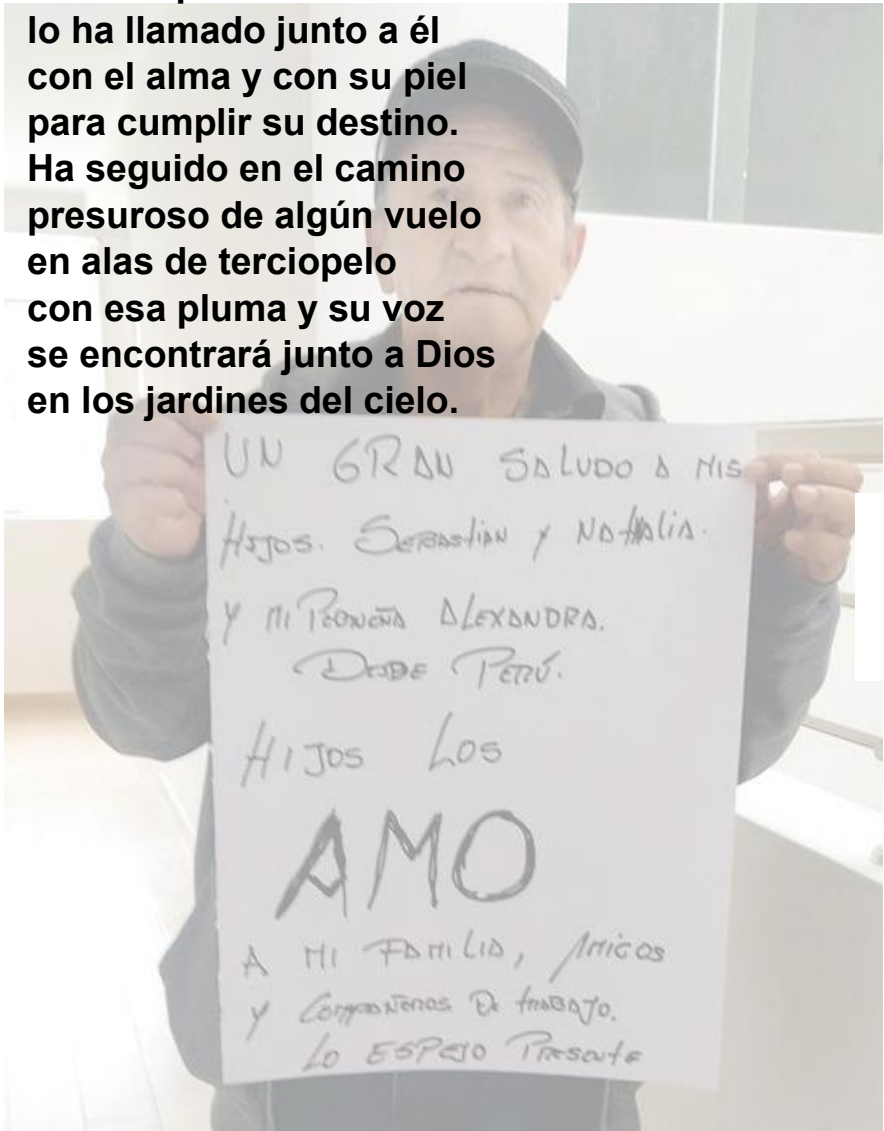 lo ha llamado junto a él
con el alma y con su piel
para cumplir su destino.
Ha seguido en el camino
presuroso de algún vuelo
en alas de terciopelo
con esa pluma y su voz
se encontrará junto a Dios
en los jardines del cielo.
UN GRAN SALUDO A MIS
HIJOS. SEBASTIAN Y NATHALIA.
Y MI PEQUEÑA ALEXANDRA.
DESDE PERÚ.
HIJOS LOS
AMO
A MI FAMILIA, AMIGOS
Y COMPAÑEROS DE TRABAJO.
LO ESPEJO PRESENTE